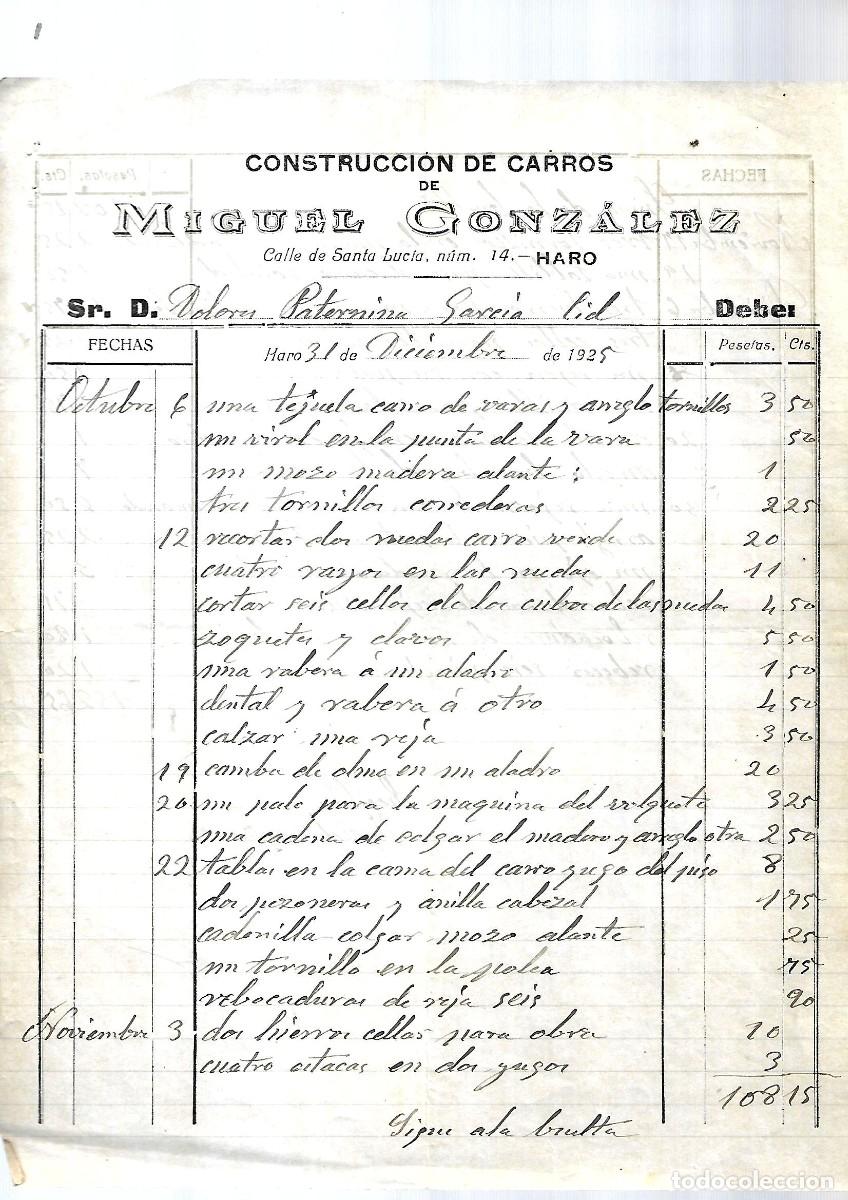 CONSTRUCCIÓN DE CARROS
DE
MIGUEL GONZÁLEZ
Calle de Santa Lucía, núm. 14.– HARO
Sr. D. Dolores Paternina García Cid Debe:
FECHAS Haro 31 de Diciembre de 1925 Pesetas. Cts.
Octubre 6 una tejuela carro de varas y arreglo tornillos 3 50
un virol en la punta de la vara 50
un mozo madera alante: 1
tres tornillos correderas 2 25
12 recortar dos ruedas carro verde 20
cuatro rayos en las ruedas 11
cortar seis cellos de los cubos de las ruedas 4 50
zoquetes y clavos 5 50
una rabera á un aladro 1 50
dental y rabera á otro 4 50
calzar una reja 3 50
19 camba de olmo en un aladro 20
20 un palo para la maquina del volquete 3 25
una cadena de colgar el madero y arreglo otra 2 50
22 tablas en la cama del carro yugo del piso 8
dos pezoneras y anilla cabezal 1 75
cadenilla colgar mozo alante 25
un tornillo en la polea 75
rebocaduras de reja seis 90
Noviembre 3 dos hierros cellos para obra 10
cuatro estacas en dos yugos 3
108 15
Sigue ala buelta
todocoleccion